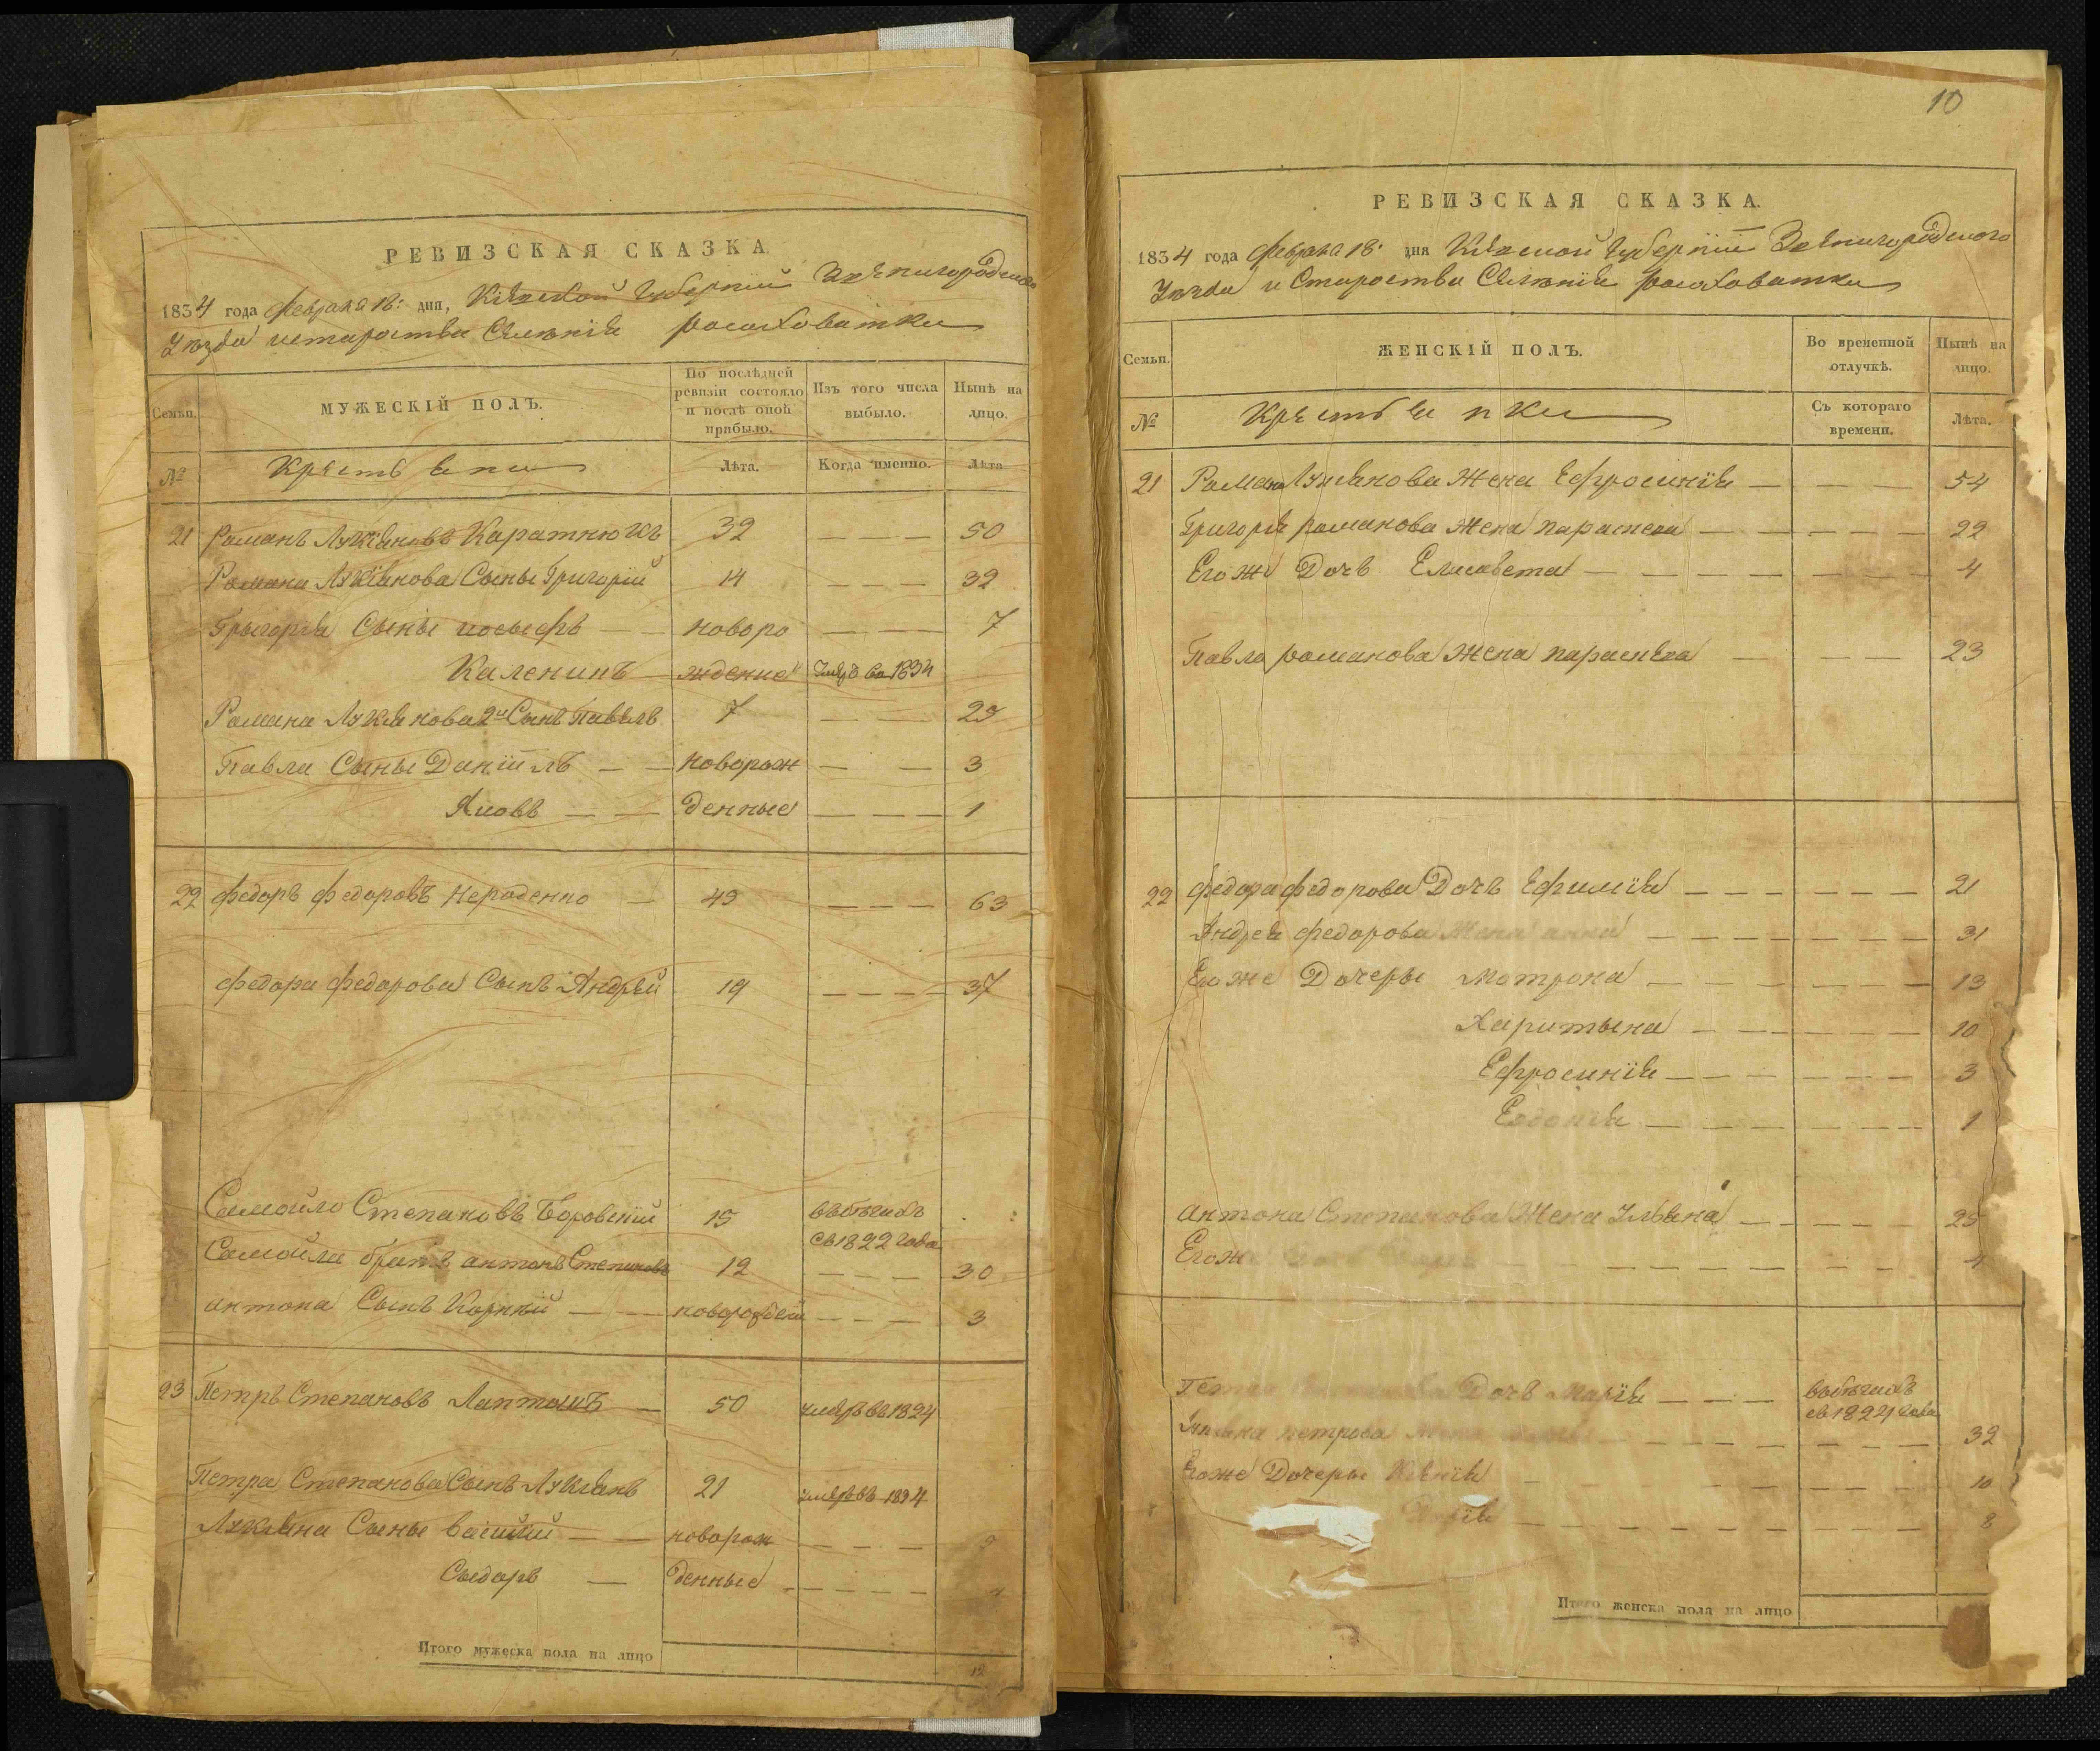 РЕВИЗСКАЯ СКАЗКА
1834 года февраля 18: дня, Кіевской Губерніи Звенигородского
Уезда и староства Селенія Росоховатки
Семьи.
МУЖЕСКІЙ ПОЛЪ.
По послѣдней ревизіи состояло и послѣ оной прибыло.
Изъ того числа выбыло.
Нынѣ на лицо.
№
Крестьяни
Лѣта.
Когда именно.
Лѣта
21 Романъ Лукіановъ Каратнюкъ 32 — — — 50
Романа Лукіанова Сыны Григорій 14 — — — 32
Григорія Сыны иосыфъ — — новоро — — — 7
Каленикъ — жденые умер в 1834
Романа Лукянова 2й Сынъ Павелъ 7 — — — 25
Павла Сыны Даніилъ — — Новорож — — 3
Яковъ — — денные — — — 1
22 федоръ федоровъ Нероденко — 45 — — — 63
федора федорова Сынъ Андрей 19 — — — 37
Самойло Степановъ Боровскій 15 въбегахъ
съ 1822 года
Самойла братъ антонъ Степановъ 12 — — — 30
антона Сынъ Корнѣй — — новорожден — — — 3
23 Петръ Степановъ Лапташъ — 50 умеръ въ 1824
Петра Степанова Сынъ Лукянъ 21 умеръ въ 1834
Лукяна Сыны василий — — новорож — — —
Сыдоръ — денные — — — —
Итого мужеска пола на лицо 12
10
РЕВИЗСКАЯ СКАЗКА.
1834 года февраля 18: дня Кіевской Губерніи Звенигородского
Уезда и Староства Селенія Росоховатки
Семьи.
ЖЕНСКІЙ ПОЛЪ.
Во временной отлучкѣ.
Нынѣ на лицо.
№
Крестьянки
Съ котораго времени.
Лѣта.
21 Романа Лукянова Жена Ефросинія — — — 54
Григорія романова Жена параскева — — — — — 22
Егоже Дочь Елисавета — — — — — — 4
Павла романова Жена параскева — — — 23
22 федора федорова Дочь Ефимія — — — — — — 21
Андрея федорова Жена анна — — — — — — 31
Егоже Дочеры Мотрона — — — — — — 13
Харитына — — — — — — 10
Ефросинія — — — — — — 3
Евдокія — — — — — — 1
антона Степанова Жена Ульяна — — — — — 25
Егоже — — — — — — 4
Петра Дочь Марія — — — въбегахъ
съ 1824 года
петрова — — — — — — 32
Егоже Дочеры Ксенія — — — — — — 10
— — — — — — — 8
Итого женска пола на лицо